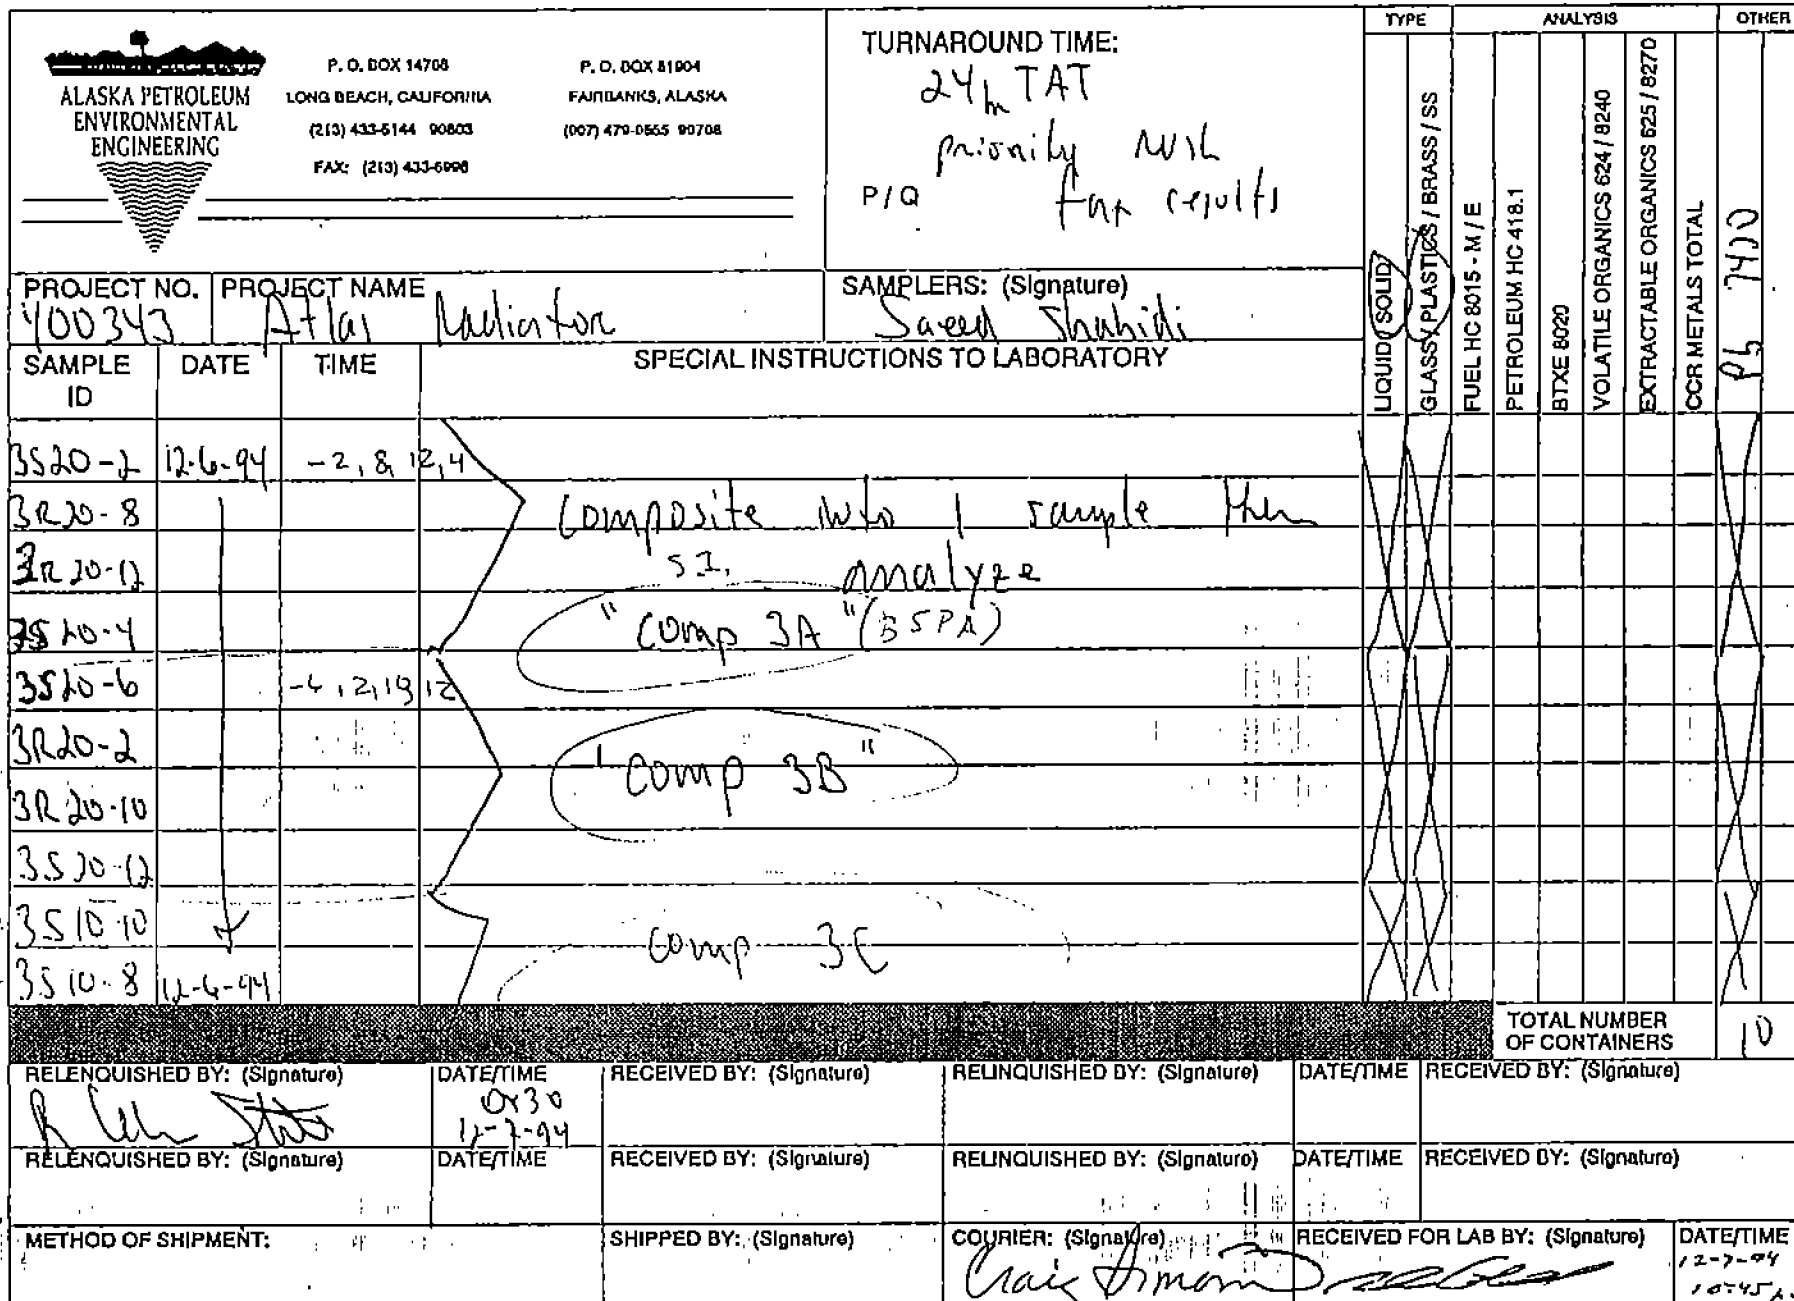 ALASKA PETROLEUM
ENVIRONMENTAL
ENGINEERING
P. O. BOX 14708
LONG BEACH, CALIFORNIA
(213) 433-5144 90803
FAX: (213) 433-6996
P. O. BOX 81904
FAIRBANKS, ALASKA
(907) 479-0555 99708
TURNAROUND TIME:
24hr TAT
priority rush
P / Q fax results
TYPE
LIQUID / SOLID
GLASS / PLASTICS / BRASS / SS
ANALYSIS
FUEL HC 8015 - M / E
PETROLEUM HC 418.1
BTXE 8020
VOLATILE ORGANICS 624 / 8240
EXTRACTABLE ORGANICS 625 / 8270
CCR METALS TOTAL
OTHER
Pb 7420
PROJECT NO.
400343
PROJECT NAME
Atlas Radiator
SAMPLERS: (Signature)
Saeed Shahidi
SAMPLE ID DATE TIME SPECIAL INSTRUCTIONS TO LABORATORY
3S20-2 12-6-94 -2, 8, 12, 4
3R20-8 Composite into 1 sample then
3R20-12 analyze
3S20-4 "Comp 3A"
3S20-6
3R20-2
3R20-10 "Comp 3B"
3S20-12
3S10-10
3S10-8 12-6-94 Comp 3C
TOTAL NUMBER OF CONTAINERS 10
RELENQUISHED BY: (Signature) DATE/TIME RECEIVED BY: (Signature) RELINQUISHED BY: (Signature) DATE/TIME RECEIVED BY: (Signature)
0830
12-7-94
RELENQUISHED BY: (Signature) DATE/TIME RECEIVED BY: (Signature) RELINQUISHED BY: (Signature) DATE/TIME RECEIVED BY: (Signature)
METHOD OF SHIPMENT: SHIPPED BY: (Signature) COURIER: (Signature) RECEIVED FOR LAB BY: (Signature) DATE/TIME
Craig 12-7-94
10:45